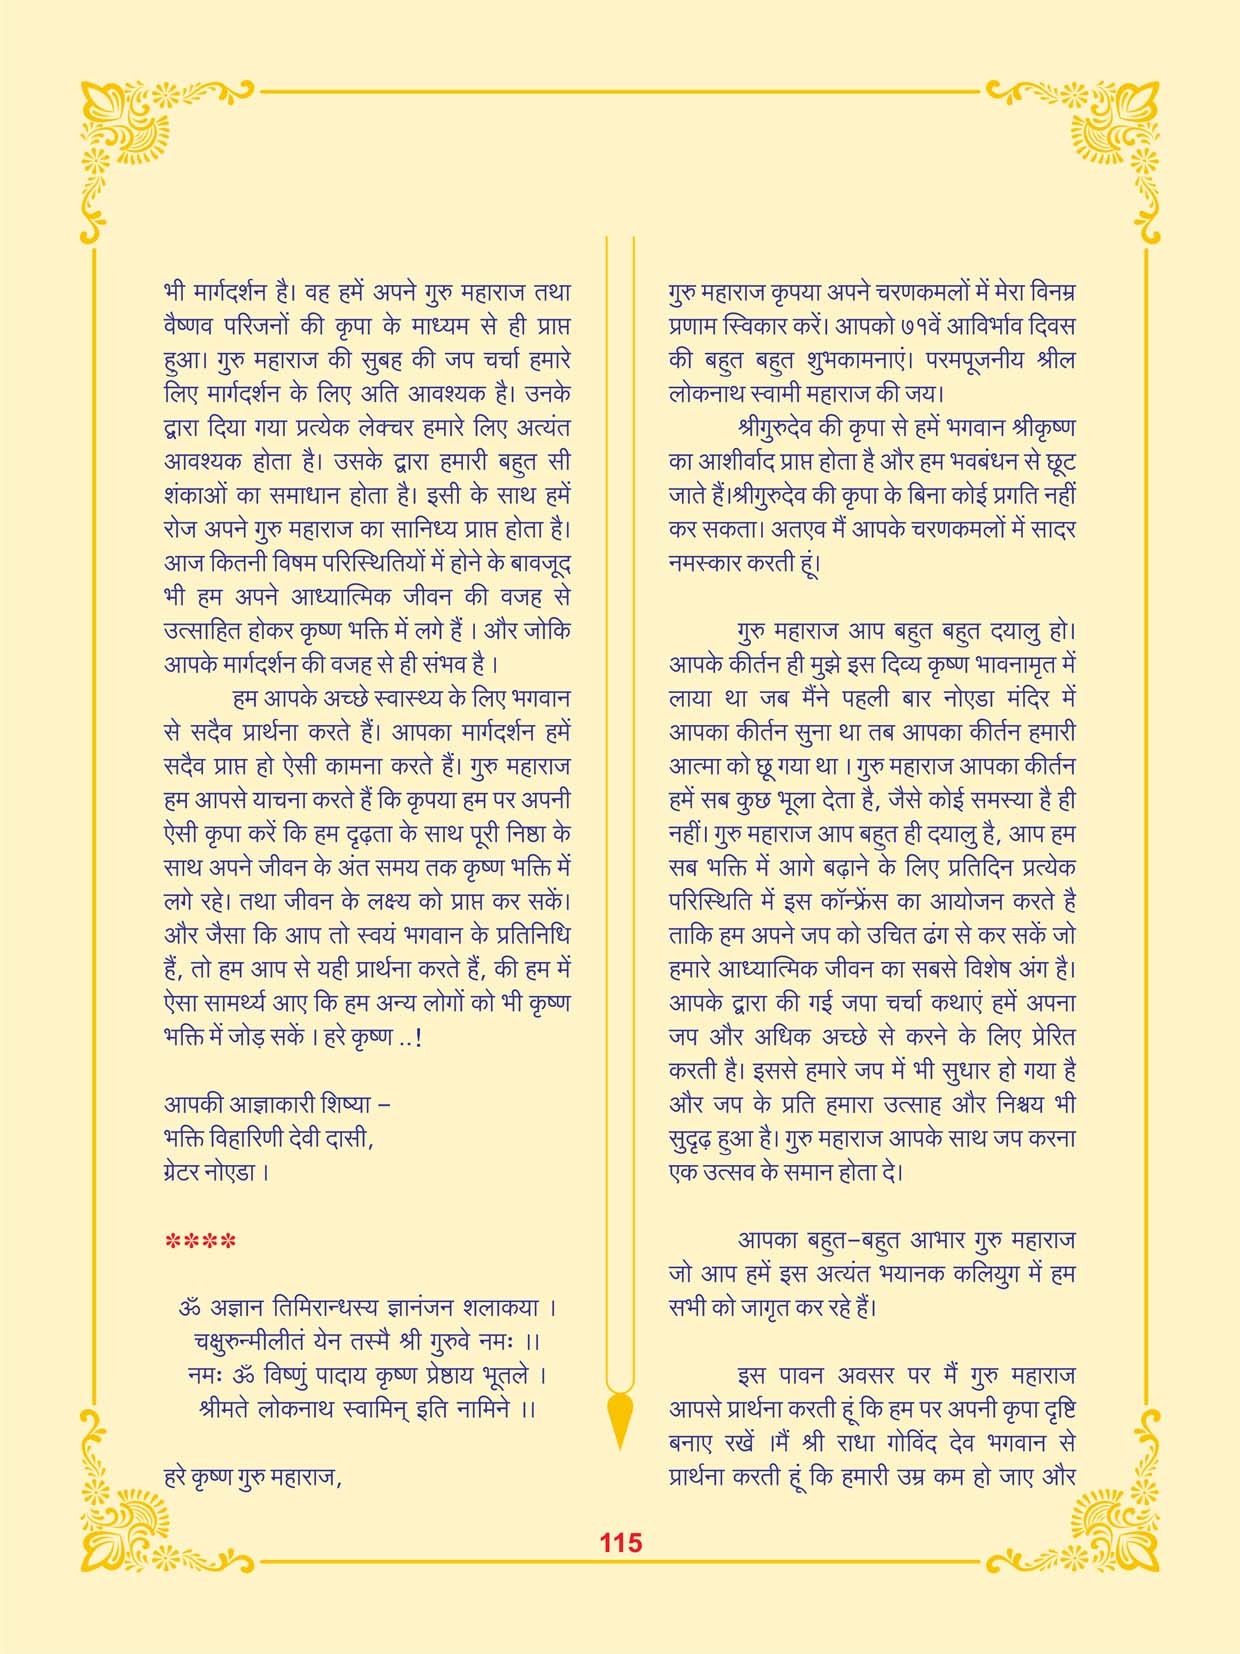 भी मार्गदर्शन है। वह हमें अपने गुरु महाराज तथा
वैष्णव परिजनों की कृपा के माध्यम से ही प्राप्त
हुआ। गुरु महाराज की सुबह की जप चर्चा हमारे
लिए मार्गदर्शन के लिए अति आवश्यक है। उनके
द्वारा दिया गया प्रत्येक लेक्चर हमारे लिए अत्यंत
आवश्यक होता है। उसके द्वारा हमारी बहुत सी
शंकाओं का समाधान होता है। इसी के साथ हमें
रोज अपने गुरु महाराज का सानिध्य प्राप्त होता है।
आज कितनी विषम परिस्थितियों में होने के बावजूद
भी हम अपने आध्यात्मिक जीवन की वजह से
उत्साहित होकर कृष्ण भक्ति में लगे हैं । और जोकि
आपके मार्गदर्शन की वजह से ही संभव है ।
हम आपके अच्छे स्वास्थ्य के लिए भगवान
से सदैव प्रार्थना करते हैं। आपका मार्गदर्शन हमें
सदैव प्राप्त हो ऐसी कामना करते हैं। गुरु महाराज
हम आपसे याचना करते हैं कि कृपया हम पर अपनी
ऐसी कृपा करें कि हम दृढ़ता के साथ पूरी निष्ठा के
साथ अपने जीवन के अंत समय तक कृष्ण भक्ति में
लगे रहे। तथा जीवन के लक्ष्य को प्राप्त कर सकें।
और जैसा कि आप तो स्वयं भगवान के प्रतिनिधि
हैं, तो हम आप से यही प्रार्थना करते हैं, की हम में
ऐसा सामर्थ्य आए कि हम अन्य लोगों को भी कृष्ण
भक्ति में जोड़ सकें । हरे कृष्ण ..!
आपकी आज्ञाकारी शिष्या –
भक्ति विहारिणी देवी दासी,
ग्रेटर नोएडा ।
****
ॐ अज्ञान तिमिरान्धस्य ज्ञानंजन शलाकया ।
चक्षुरुन्मीलीतं येन तस्मै श्री गुरुवे नमः ।।
नमः ॐ विष्णुं पादाय कृष्ण प्रेष्ठाय भूतले ।
श्रीमते लोकनाथ स्वामिन् इति नामिने ।।
हरे कृष्ण गुरु महाराज,
गुरु महाराज कृपया अपने चरणकमलों में मेरा विनम्र
प्रणाम स्विकार करें। आपको ७१वें आविर्भाव दिवस
की बहुत बहुत शुभकामनाएं। परमपूजनीय श्रील
लोकनाथ स्वामी महाराज की जय।
श्रीगुरुदेव की कृपा से हमें भगवान श्रीकृष्ण
का आशीर्वाद प्राप्त होता है और हम भवबंधन से छूट
जाते हैं।श्रीगुरुदेव की कृपा के बिना कोई प्रगति नहीं
कर सकता। अतएव मैं आपके चरणकमलों में सादर
नमस्कार करती हूं।
गुरु महाराज आप बहुत बहुत दयालु हो।
आपके कीर्तन ही मुझे इस दिव्य कृष्ण भावनामृत में
लाया था जब मैंने पहली बार नोएडा मंदिर में
आपका कीर्तन सुना था तब आपका कीर्तन हमारी
आत्मा को छू गया था । गुरु महाराज आपका कीर्तन
हमें सब कुछ भूला देता है, जैसे कोई समस्या है ही
नहीं। गुरु महाराज आप बहुत ही दयालु है, आप हम
सब भक्ति में आगे बढ़ाने के लिए प्रतिदिन प्रत्येक
परिस्थिति में इस कॉन्फ्रेंस का आयोजन करते है
ताकि हम अपने जप को उचित ढंग से कर सकें जो
हमारे आध्यात्मिक जीवन का सबसे विशेष अंग है।
आपके द्वारा की गई जपा चर्चा कथाएं हमें अपना
जप और अधिक अच्छे से करने के लिए प्रेरित
करती है। इससे हमारे जप में भी सुधार हो गया है
और जप के प्रति हमारा उत्साह और निश्चय भी
सुदृढ़ हुआ है। गुरु महाराज आपके साथ जप करना
एक उत्सव के समान होता दे।
आपका बहुत–बहुत आभार गुरु महाराज
जो आप हमें इस अत्यंत भयानक कलियुग में हम
सभी को जागृत कर रहे हैं।
इस पावन अवसर पर मैं गुरु महाराज
आपसे प्रार्थना करती हूं कि हम पर अपनी कृपा दृष्टि
बनाए रखें ।मैं श्री राधा गोविंद देव भगवान से
प्रार्थना करती हूं कि हमारी उम्र कम हो जाए और
115